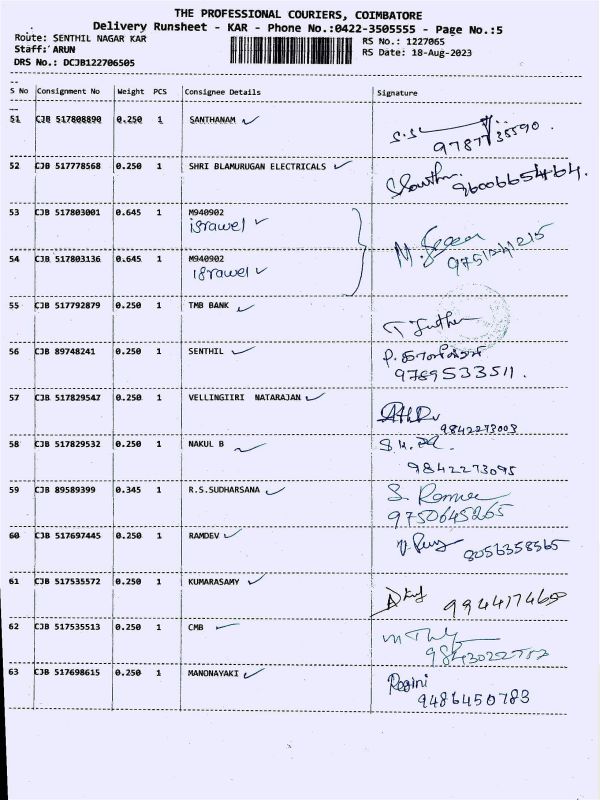 THE PROFESSIONAL COURIERS, COIMBATORE
Delivery Runsheet - KAR - Phone No.:0422-3505555 - Page No.:5
Route: SENTHIL NAGAR KAR
RS No.: 1227065
Staff: ARUN
RS Date: 18-Aug-2023
DRS No.: DCJB122706505
S No Consignment No Weight PCS Consignee Details Signature
51 CJB 517808890 0.250 1 SANTHANAM
52 CJB 517778568 0.250 1 SHRI BLAMURUGAN ELECTRICALS
9600665464.
53 CJB 517803001 0.645 1 M940902
israwel
54 CJB 517803136 0.645 1 M940902
israwel
55 CJB 517792879 0.250 1 TMB BANK
56 CJB 89748241 0.250 1 SENTHIL
9789533511.
57 CJB 517829547 0.250 1 VELLINGIIRI NATARAJAN
9842273003
58 CJB 517829532 0.250 1 NAKUL B
9842273095
59 CJB 89589399 0.345 1 R.S.SUDHARSANA
9750645265
60 CJB 517697445 0.250 1 RAMDEV
8056358565
61 CJB 517535572 0.250 1 KUMARASAMY
62 CJB 517535513 0.250 1 CMB
63 CJB 517698615 0.250 1 MANONAYAKI
Ragini
9486450783